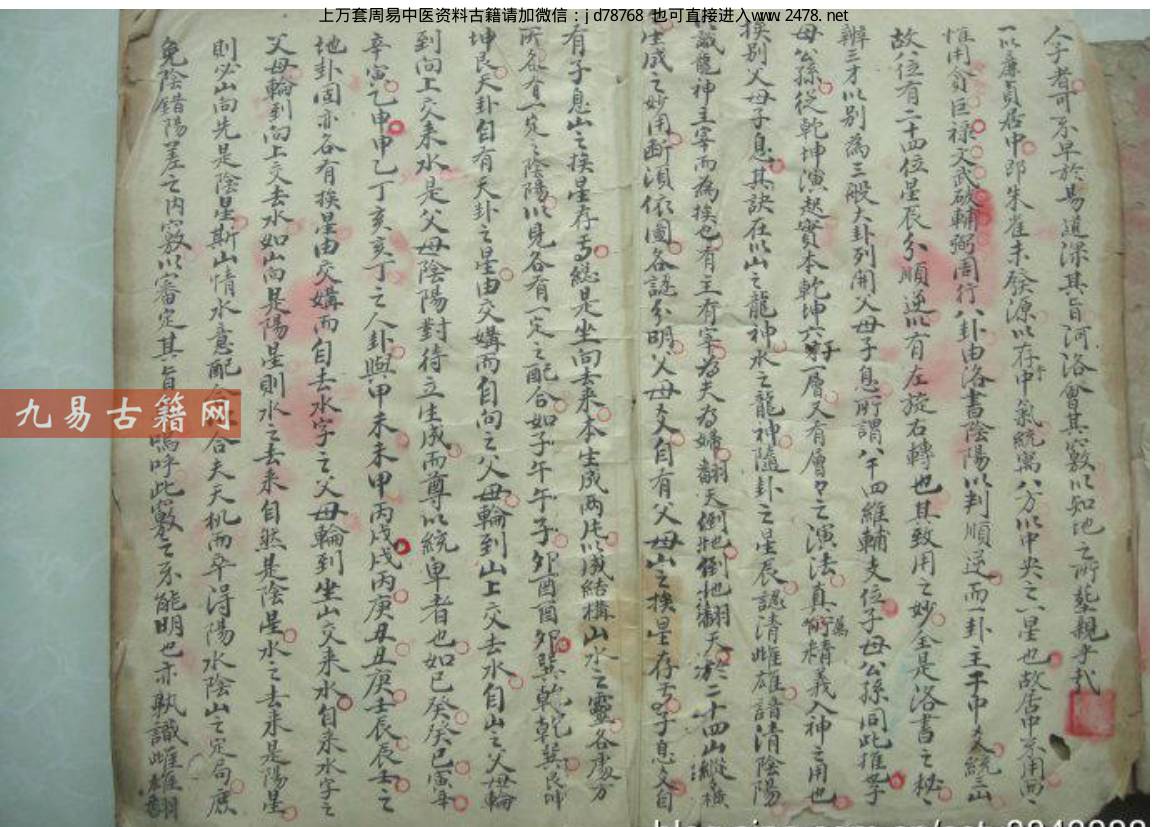 上万套周易中医资料古籍请加微信：jd78768 也可直接进入www.2478.net
人子者可不早於易道深其旨河洛會其竅以知地之所塟親乎哉
一以廉貞居中即朱雀未發源以存中氣統寓八方以中央之一星也故居中不用而一
惟用貪巨祿文武破輔弼周行八卦由洛書陰陽以判順逆而一卦主干中爻統三山
故八位有二十四位星辰分順逆以有左旋右轉也其致用之妙全是洛書之秘
辦三才以別為三般大卦列開父母子息所謂八干四維輔支位子母公孫同此推乎
母公孫從乾坤演起實本乾坤六子一層又有層々之演法真竅精義入神之用也
挨別父母子息其訣在以山之龍神水之龍神隨卦之星辰認清雌雄諳清陰陽
識龍神主宰而為挨也有主有宰為夫為婦翻天倒地倒地翻天於二十四山縱橫
生成之妙用斷須依圖各認分明父母爻自有父母山之挨星存焉子息爻自
有子息山之挨星存焉總是坐向去來本生成兩片以成結構山水之靈各處方
所各有一定之陰陽以見各有一定之配合如子午午子卯酉酉卯巽乾乾巽艮坤
坤艮天卦自有天卦之星由交媾而自向之父母輪到山上交去水自山之父母輪
到向上交來水是父母陰陽對待立生成而尊以統卑者也如巳癸癸巳寅辛
辛寅乙申申乙丁亥亥丁之人卦與甲未未甲丙戌戌丙庚丑丑庚壬辰辰壬之
地卦固亦各有挨星由交媾而自去水字之父母輪到坐山交來水自來水字之
父母輪到向上交去水如山向是陽星則水之去來自然是陰星水之去來是陽星
則必山向先是陰星斯山情水意配合夫天机而卒得陽水陰山之定局庶
免陰錯陽差之内竅以審定其旨嗚呼此竅之不能明也亦孰識雌雄翻
九易古籍网